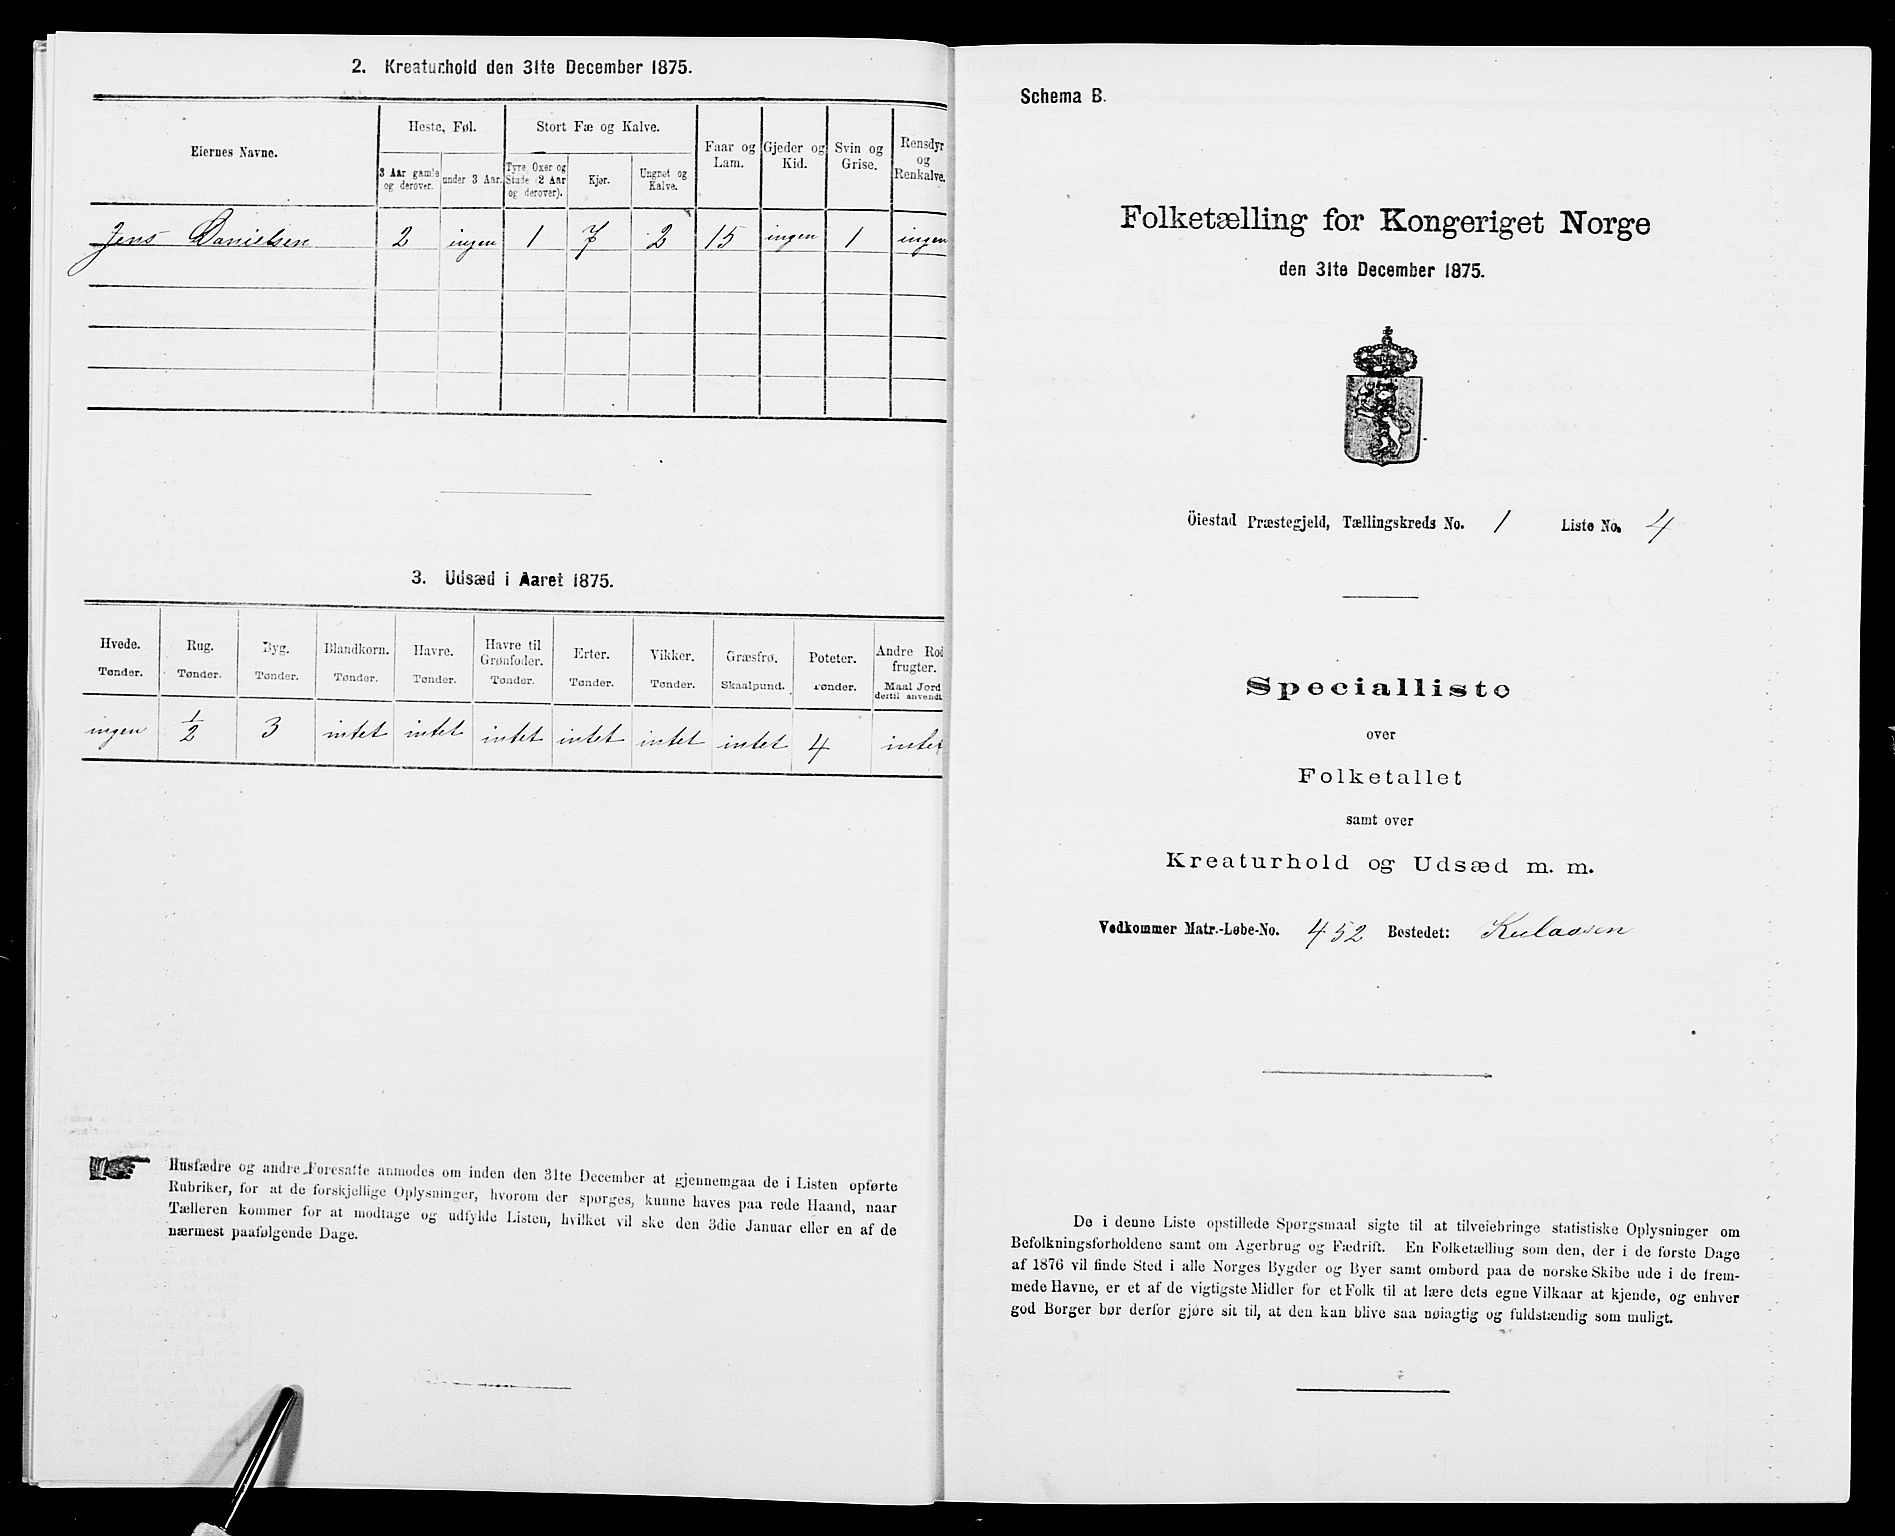 2. Kreaturhold den 31te December 1875.
Eiernes Navne.
Heste, Føl.
Stort Fæ og Kalve.
3 Aar gamle og derover.
under 3 Aar.
Tyre, Oxer og Stude (2 Aar og derover).
Kjør.
Ungnøt og Kalve.
Faar og Lam.
Gjeder og Kid.
Svin og Grise.
Rensdyr og Renkalve.
Jens Danielsen 2 ingen 1 7 2 15 ingen 1 ingen
3. Udsæd i Aaret 1875.
Hvede. Rug. Byg. Blandkorn. Havre. Havre til Grønfoder. Erter. Vikker. Græsfrø. Poteter. Andre Rodfrugter.
Tønder. Tønder. Tønder. Tønder. Tønder. Tønder. Tønder. Tønder. Skaalpund. Tønder. Maal Jord dertil anvendt
ingen 1/2 3 intet intet intet intet intet intet 4 intet
Husfædre og andre Foresatte anmodes om inden den 31te December at gjennemgaa de i Listen opførte
Rubriker, for at de forskjellige Oplysninger, hvorom der spørges, kunne haves paa rede Haand, naar
Tælleren kommer for at modtage og udfylde Listen, hvilket vil ske den 3die Januar eller en af de
nærmest paafølgende Dage.
Schema B.
Folketælling for Kongeriget Norge
den 31te December 1875.
Öiestad Præstegjeld, Tællingskreds No. 1 Liste No. 4
Specialliste
over
Folketallet
samt over
Kreaturhold og Udsæd m. m.
Vedkommer Matr.-Løbe-No. 452 Bostedet:
De i denne Liste opstillede Spørgsmaal sigte til at tilveiebringe statistiske Oplysninger om
Befolkningsforholdene samt om Agerbrug og Fædrift. En Folketælling som den, der i de første Dage
af 1876 vil finde Sted i alle Norges Bygder og Byer samt ombord paa de norske Skibe ude i de frem-
mede Havne, er et af de vigtigste Midler for et Folk til at lære dets egne Vilkaar at kjende, og enhver
god Borger bør derfor gjøre sit til, at den kan blive saa nøiagtig og fuldstændig som muligt.